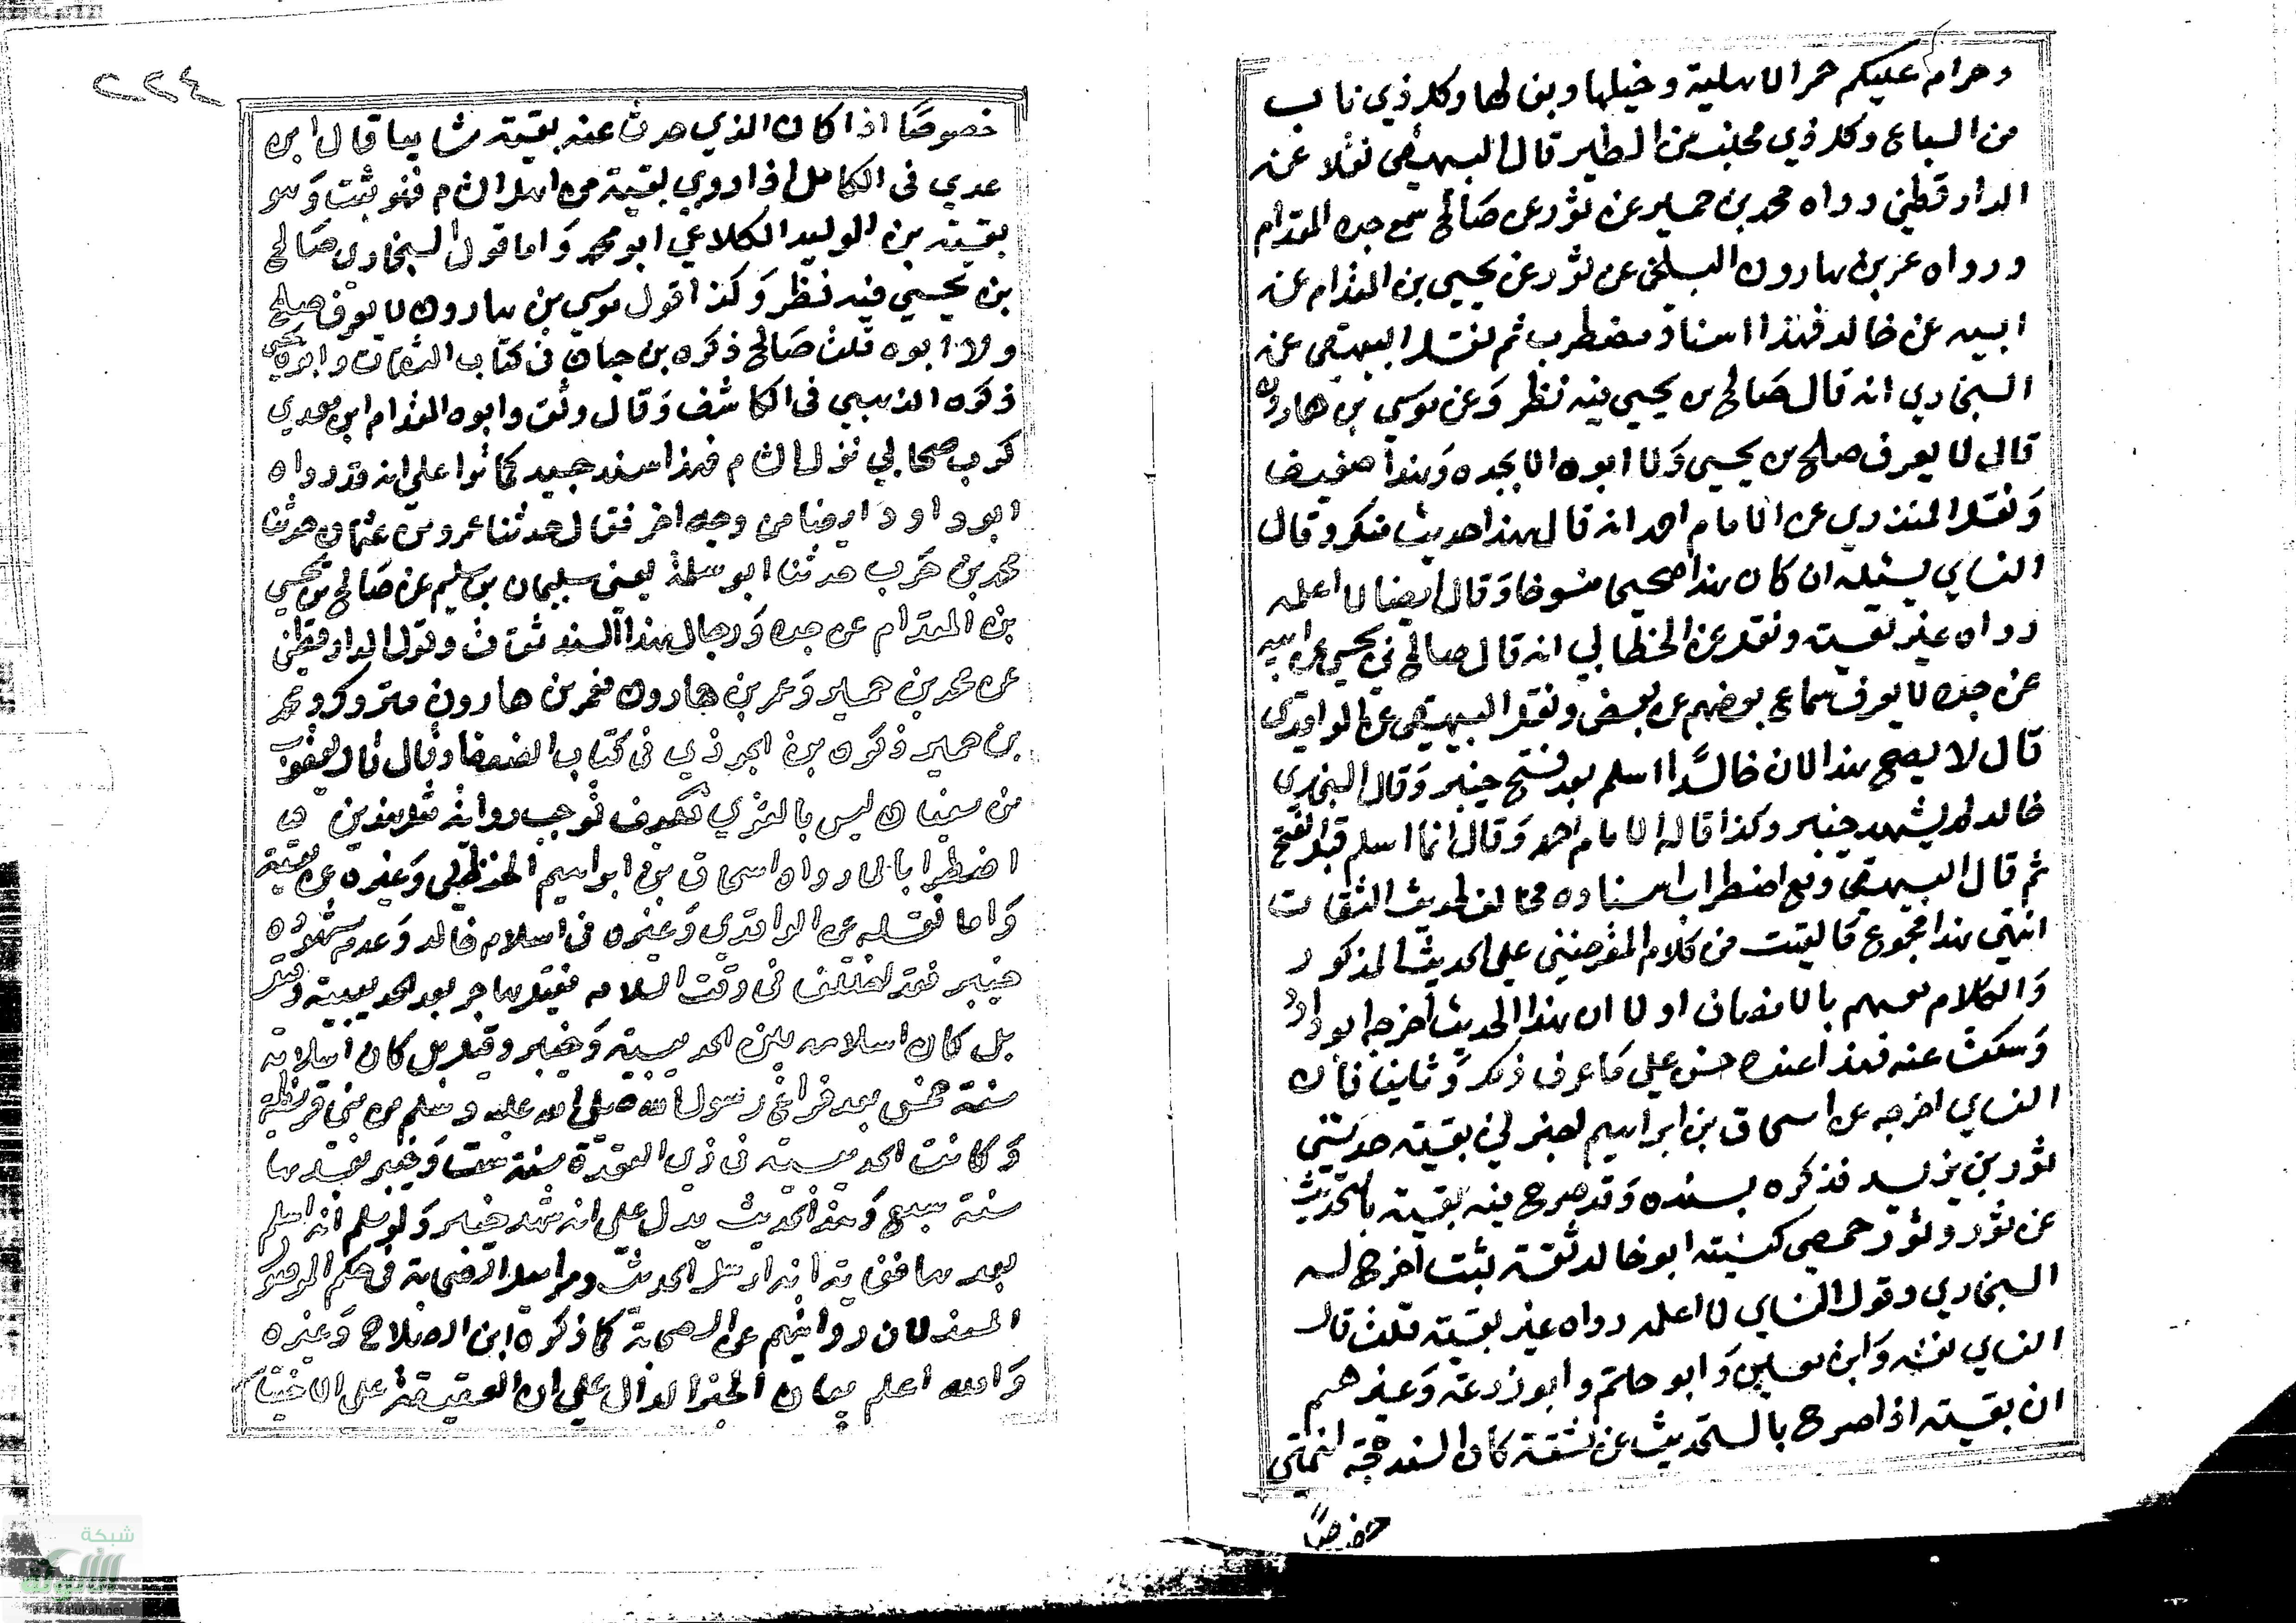 وحرام عليكم حمر الاهلية وخيلها وبغالها وكل ذي ناب
من السباع وكل ذي مخلب من الطير قال البيهقي نقلا عن
الدارقطني رواه محمد بن حمير عن ثور عن صالح سمع جده المقدام
ورواه عمر بن هارون البلخي عن ثور عن يحيى بن المقدام عن
ابيه عن خالد فهذا اسناد مضطرب ثم نقل البيهقي عن
البخاري انه قال صالح بن يحيى فيه نظر وعن موسى بن هارون
قال لا يعرف صالح بن يحيى ولا ابوه الا بجده وهذا ضعيف
ونقل المنذري عن الامام احمد انه قال هذا حديث منكر وقال
النساي يشبه ان كان هذا صحيحا منسوخا وقال ايضا لا اعلمه
رواه غير بقية ونقل عن الخطابي انه قال صالح بن يحيى عن ابيه
عن جده لا يعرف سماع بعضهم عن بعض ونقل البيهقي عن الواقدي
قال لا يصح هذا لان خالدا اسلم بعد فتح خيبر وقال البخاري
خالد لم يشهد خيبر وكذا قاله الامام احمد وقال انما اسلم قبل الفتح
ثم قال البيهقي ومع اضطراب اسناده مخالف لحديث الثقات
انتهى هذا مجموع ما ليقت من كلام المعرضين على الحديث المذكور
والكلام معهم بالانصاف اولا ان هذا الحديث اخرجه ابو داود
وسكت عنه فهذا عنده حسن على ما عرف ذكر وثانيا فان
النساي اخرجه عن اسحاق بن ابراهيم اخبرني بقية حدثني
ثور بن يزيد فذكره بسنده وقد صرح فيه بقية بالتحديث
عن ثور وثور حمصي كنيته ابو خالد ثقة ثبت اخرج له
البخاري وقول النساي لا اعلمه رواه غير بقية قلت قال
النساي نفسه وابن معين وابو حاتم وابو زرعة وغيرهم
ان بقية اذا صرح بالتحديث عن ثقة كان السند حجة انتهى
خصوصا
٢٢٤
خصوصا اذا كان الذي حدث عنه بقية شاميا قال ابن
عدي في الكامل اذا روى بقية من اهل الشام فهو ثبت وهو
بقية بن الوليد الكلاعي ابو محمد واما قول البخاري صالح
بن يحيى فيه نظر وكذا قول موسى بن هارون لا يعرف صالح
ولا ابوه قلت صالح ذكره بن حبان في كتاب الثقات وابوه يحيى
ذكره الذهبي في الكاشف وقال وثق وابوه المقدام ابن معدي
كرب صحابي نزل الشام فهذا سند جيد كما نوا على انه قد رواه
ابو داود ايضا من وجه اخر فقال حدثنا عمرو بن عثمان حدثنا
محمد بن حرب حدثنا ابو سلمة يعني سليمان بن سليم عن صالح بن يحيى
بن المقدام عن جده ورجال هذا السند ثقات وقول الدارقطني
عن محمد بن حمير وعمر بن هارون فعمر بن هارون متروك ومحمد
بن حمير ذكره بن الجوزي في كتاب الضعفا وقال قال يعقوب
بن سفيان ليس بالقوي فكيف توجب رواية مثل هذين
اضطرابا لما رواه اسحاق بن ابراهيم الحنظلي وغيره عن بقية
واما نقله عن الواقدي وغيره في اسلام خالد وعدم شهوده
خيبر فقد اختلف في وقت اسلامه فقيل هاجر بعد الحديبية وقيل
بل كان اسلامه بين الحديبية وخيبر وقيل بل كان اسلامه
سنة خمس بعد فراغ رسول الله صلى الله عليه وسلم من بني قريظة
وكانت الحديبية في ذي القعدة سنة ست وخيبر بعدها
سنة سبع وهذا الحديث يدل على انه شهد خيبر ولو سلم انه اسلم
بعدها فغايته انه ارسل الحديث ومراسيل الصحابة في حكم الموصول
المسند لان روايتهم عن الصحابة كما ذكره ابن الصلاح وغيره
والله اعلم بيان الخبر الدال على ان العقيقة على الاختيار
شبكة
الألوكة
www.alukah.net